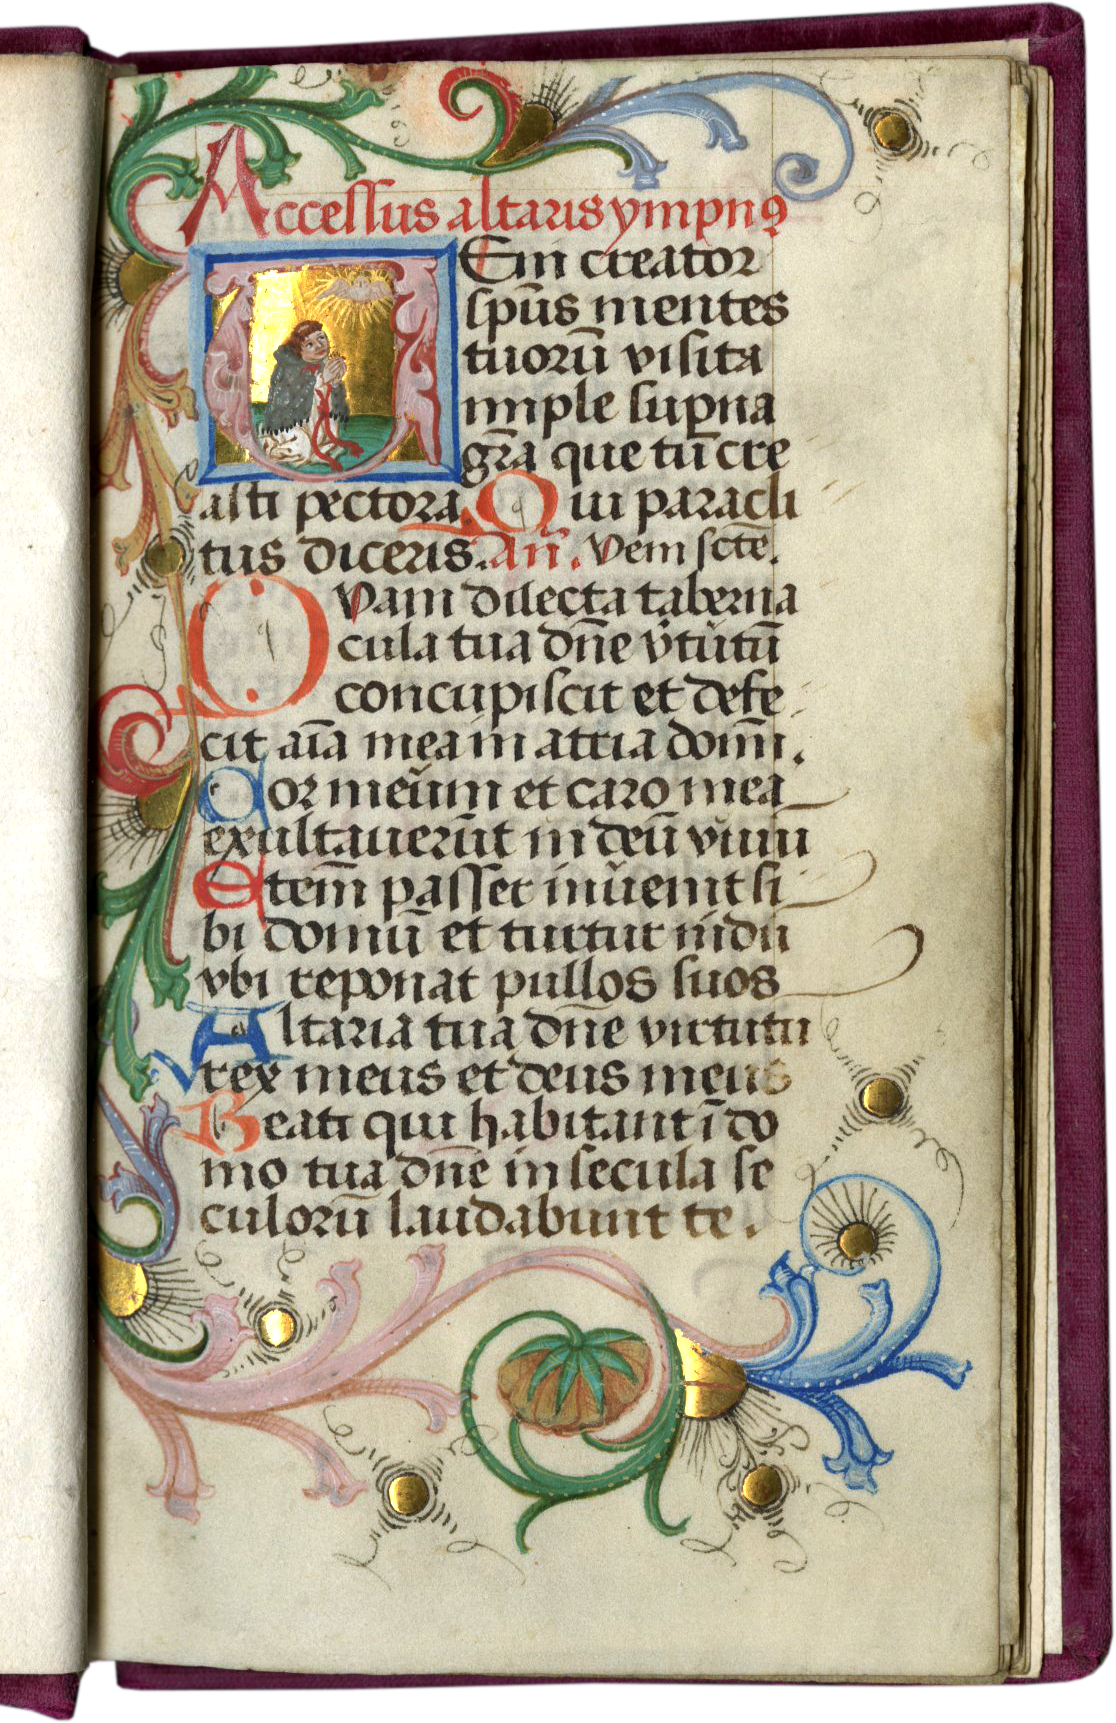 Accessus altaris ympnꝯ
Veni creator
sp̄us mentes
tuoru᷑ visita
imple sup̄na
gr̄a que tu᷑ cre
asti pectora Qui paracli
tus diceris. An̄. Veni sct̄e.
Quam dilecta taberna
cula tua dn̄e v̾tutū
concupiscit et defe
cit aīa mea in atria domī.
Cor meum et caro mea
exultauerūt in deū viuū
Etem̄ passer inuenit si
bi domū et turtur nidū
vbi reponat pullos suos
Altaria tua dn̄e virtutū
rex meus et deus meus
Beati qui habitant ī do
mo tua dn̄e in secula se
culorū laudabunt te.